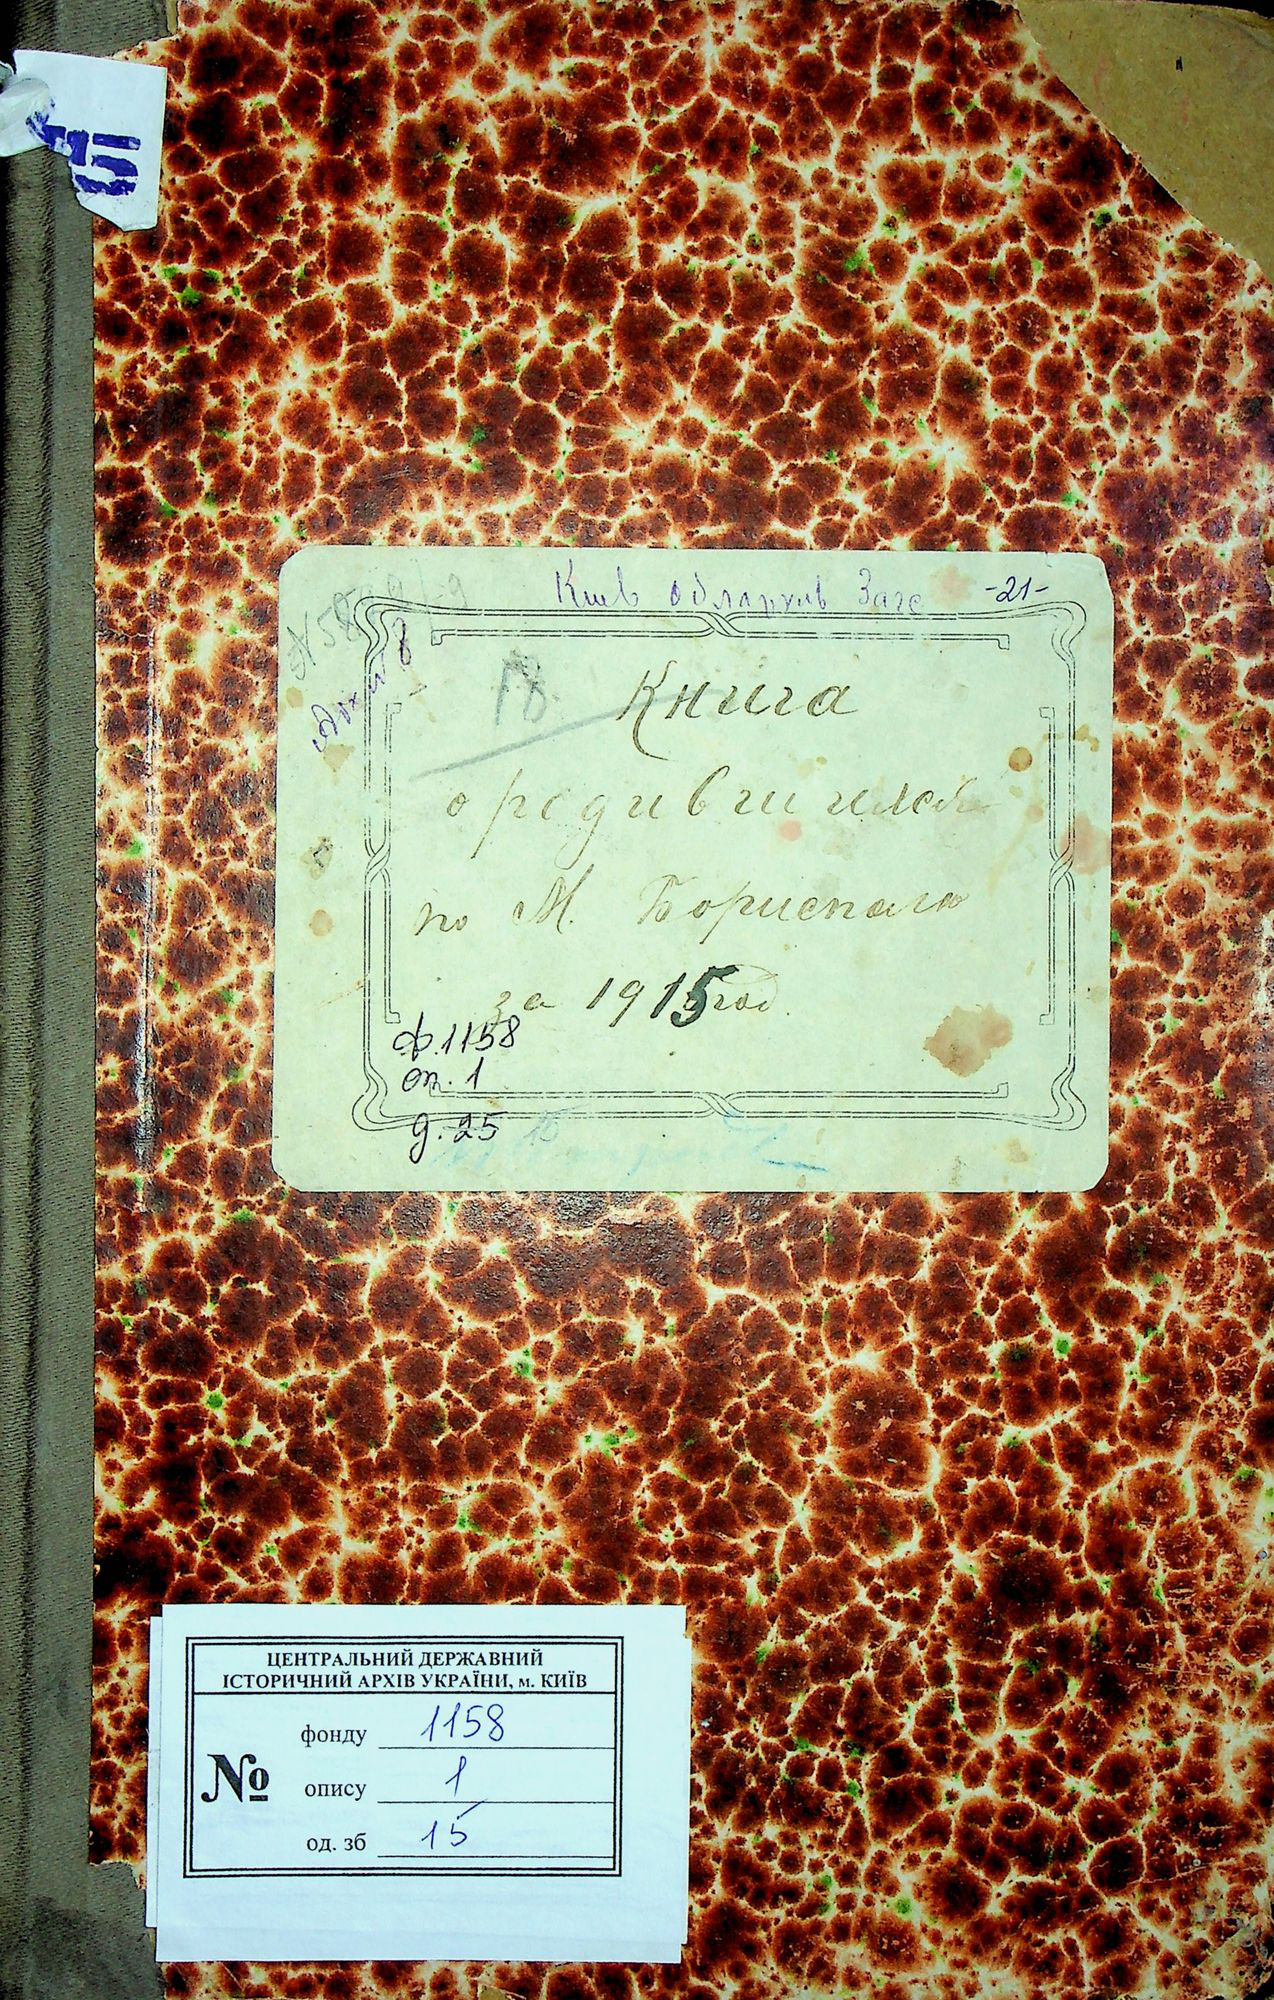 15
Киев облархив Загс -21-
18
Книга
о родившихся
по М. Борисполю
за 1915 год.
ф. 1158
оп. 1
д. 25 15
ЦЕНТРАЛЬНИЙ ДЕРЖАВНИЙ
ІСТОРИЧНИЙ АРХІВ УКРАЇНИ, м. КИЇВ
№
фонду 1158
опису 1
од. зб 15